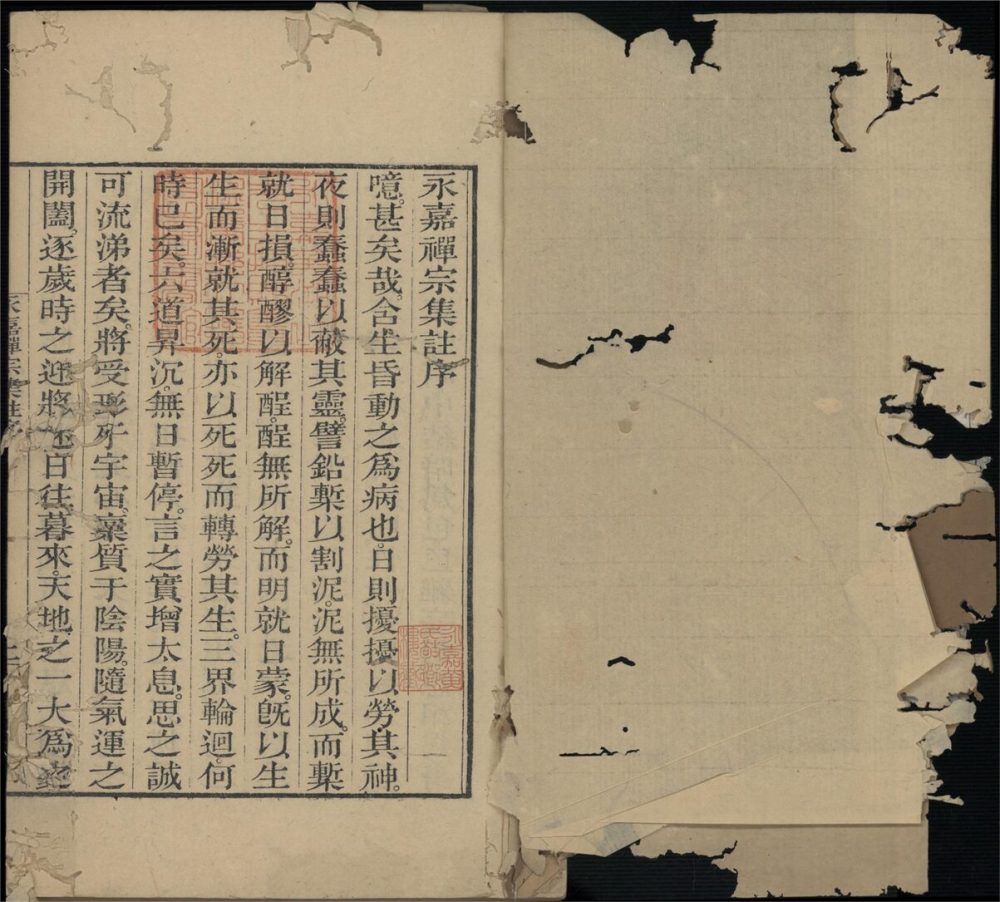 永嘉禪宗集註序
噫。甚矣哉。含生昏動之爲病也。日則擾擾以勞其神。
夜則蠢蠢以蔽其靈。譬鉛槧以割泥。泥無所成。而槧
就日損。醇醪以解酲。酲無所解。而明就日蒙。旣以生
生而漸就其死。亦以死死而轉勞其生。三界輪迴。何
時已矣。六道昇沉。無日暫停。言之實增太息。思之誠
可流涕者矣。將受形于宇宙。稟質于陰陽。隨氣運之
開闔。逐歲時之迎將。日往暮來。天地之一大爲
永嘉禪宗集註序
永嘉黃